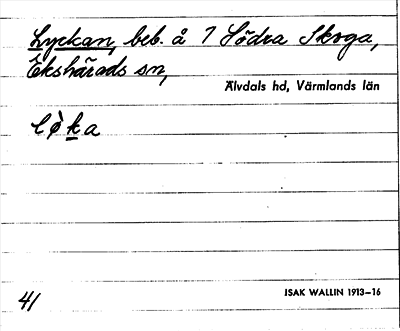 Lyckan, beb. å 7 Södra Skoga,
Ekshärads sn,
Älvdals hd, Värmlands län
lø̀ka
41
ISAK WALLIN 1913–16